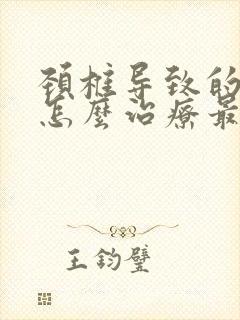 颈椎导致的
怎麼治療最
王钧璧